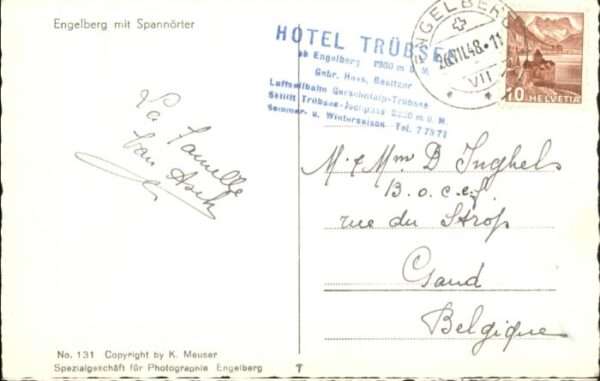 Engelberg mit Spannörter
HOTEL TRÜBSEE
ob Engelberg 1800 m ü. M.
Gebr. Hess, Besitzer
Luftseilbahn Gerschnialp-Trübsee
Skilift Trübsee-Jochpass 2220 m ü. M.
Sommer- u. Wintersaison Tel. 7 79 71
ENGELBERG
26.VII.48.-11
VII
10 HELVETIA
La famille
Van
M. & Mme D Inghels
B.o.c.
rue du Strop
Gand
Belgique
No. 131 Copyright by K. Meuser
Spezialgeschäft für Photographie Engelberg
T